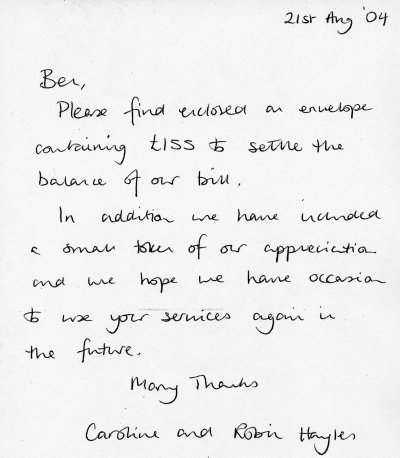 21st Aug '04
Ben,
Please find enclosed an envelope
containing £155 to settle the
balance of our bill.
In addition we have included
a small token of our appreciation
and we hope we have occasion
to use your services again in
the future.
Many Thanks
Caroline and Robin Hayles